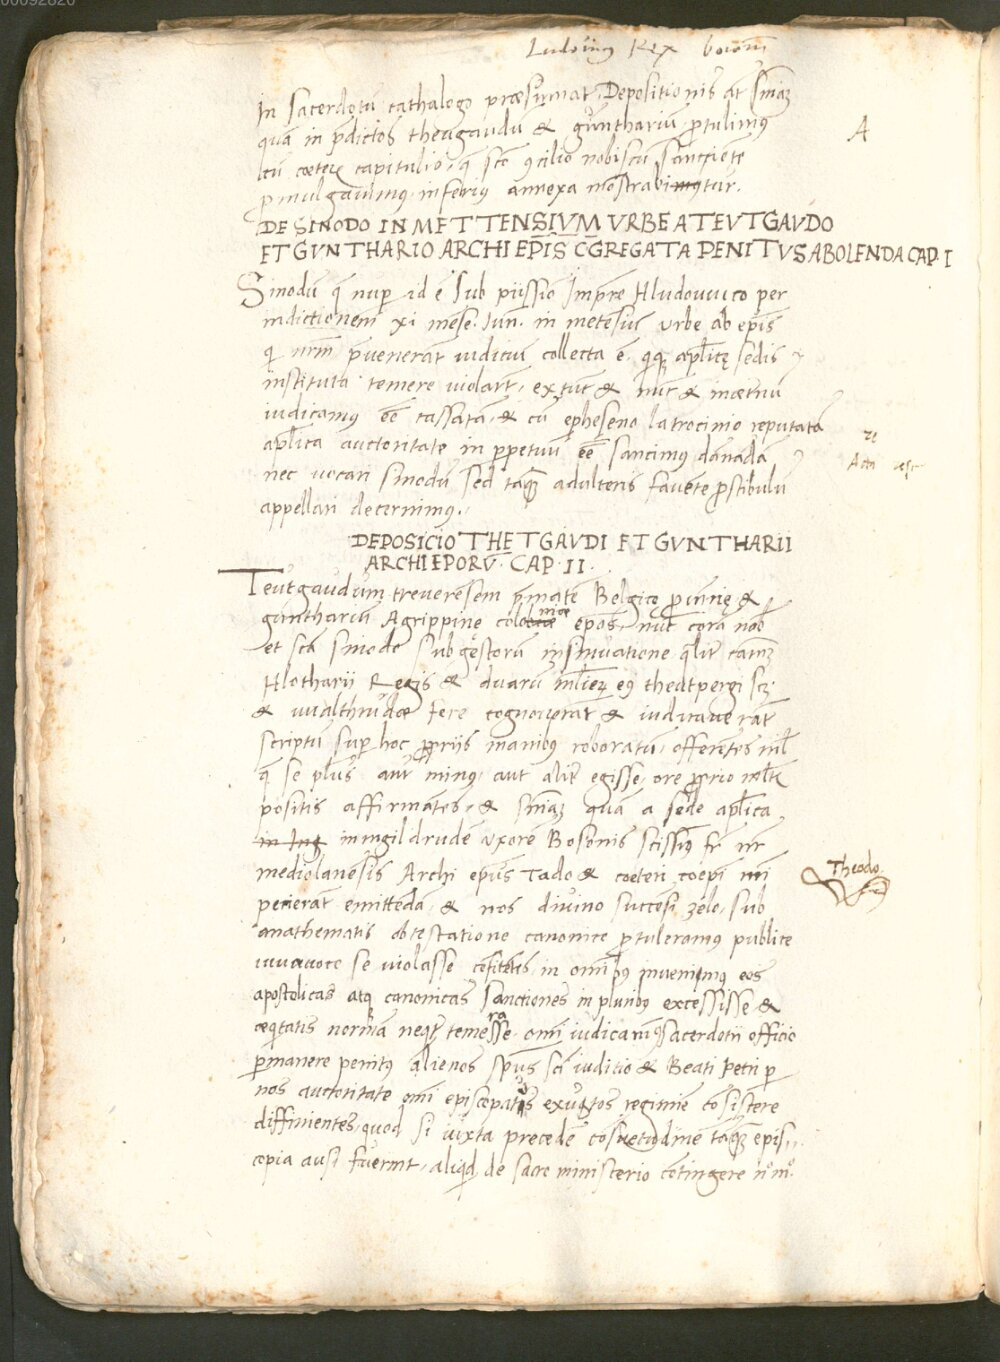 00092820
Ludouicus Rex boioru
In sacerdotu cathalogo præsumat. Depositionis at sniaz
qua in p̄dictos theagaudu & guntharium ꝓtulimus
cu cæteris capitulis q̨ sco ꝯcilio nobiscu sanctiote
ꝓmulgauimus inferius annexa mostrabimustur.
A
DE SINODO IN METTENSIVM VRBE A TEVTGAVDO
ET GVNTHARIO ARCHIEPIS CGREGATA PENITVS ABOLENDA CAP. I
Sinodu q̄ nup id ē sub piissimo Impre Hludouuico per
indictionem xi mēse Iun. in metēsiu urbe ab epis
qi nrm p̄uenerāt iudiciu collecta ē qiq aplicę sedis
instituta temere violart, extūc & nūc & in ætnu
iudicamus eē cassatā, & cu epheseno latrocinio reputatā
aplica auctoritate in ppetuu eē sancimus dānadā
nec vocari sinodu sed tāq̄ adulteris fauētē ꝓstibulu
appellari decernimus.
DEPOSICIO THETGAVDI ET GVNTHARII
ARCHIEPORV̄. CAP. II.
Teutgaudum treverēsem p̄matē Belgicę ꝓuincię &
guntharium Agrippinę coloniæ epos, nūc corā nob
et scā sinodo sub gestorū insinuatione qlir caam
Hlotharii Regis & duarū mlieꝝ eius theutpergę scz
& uualthrudæ fere cognouerāt & iudicauerāt
scriptū sup hoc ꝓpriis manibus roboratū, offerentes nil
q̄ se plus aut minus, aut alit egisse, ore ꝓprio mltis
positis affirmātes, & sniaz quā a sede aplica
in Ing in ingildrudē uxorē Bosonis scissimus fr nr
mediolanēsis Archi epus Tado & cæteri coepi nri
pecierāt emittēdā, & nos diuino succensi zelo, sub
anathematis obtestatione canonice ꝓtuleramus publice
uiua uoce se violasse cōfitētes, in omibus inuenimus eos
apostolicas atq canonicas sanctiones in pluribus excessisse &
æqitatis normā neqit temerasse omi iudicamus sacerdotii officio
pmanere penitus alienos, spus sci iuditio & Beati Petri p
nos auctoritate omi episcopatus exutos regimie cosistere
diffinientes, quod si iuxta precedē cosuetudinē tāq̄ epis,,
copia ausi fuerint, aliqid de sacro ministerio cōtingere
Theodo.